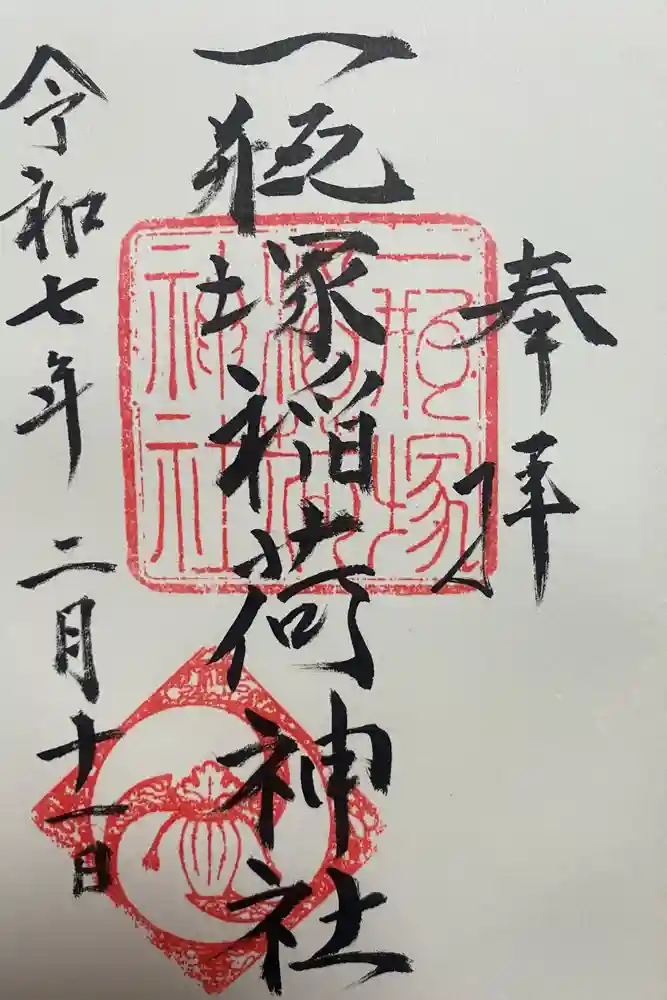 奉拝
一瓶塚稲荷神社
令和七年 二月十一日
一瓶塚
稲荷
神社